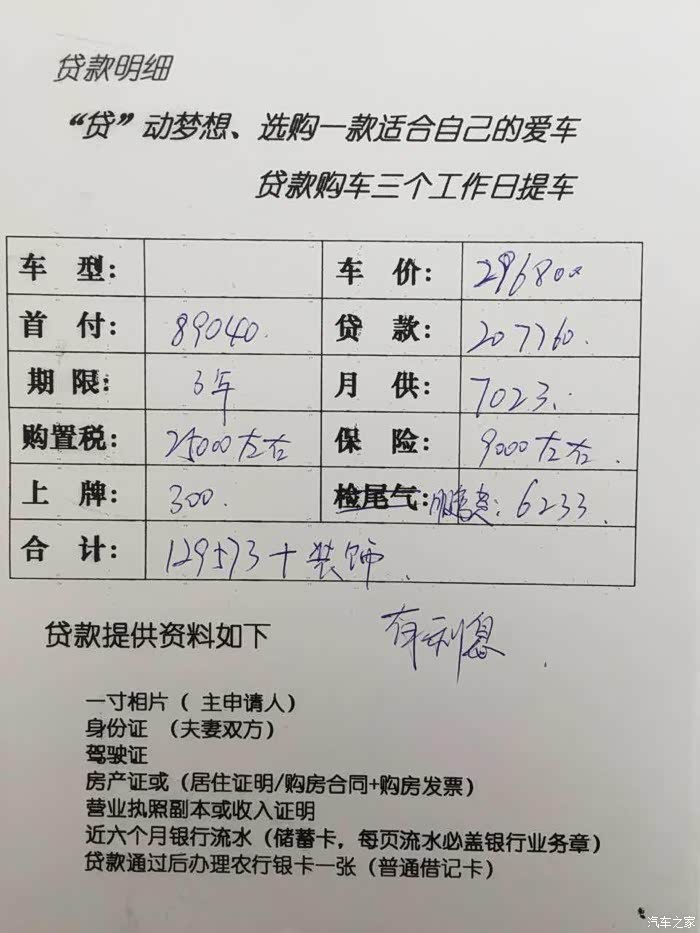 贷款明细
“贷”动梦想、选购一款适合自己的爱车
贷款购车三个工作日提车
车 型： 车 价： 296800
首 付： 89040. 贷 款： 207760.
期 限： 3年 月 供： 7023.
购置税： 25000左右 保 险： 9000左右.
上 牌： 300. 检尾气： 服务费：6233.
合 计： 129573+装饰.
有利息.
贷款提供资料如下
一寸相片（ 主申请人）
身份证 （夫妻双方）
驾驶证
房产证或（居住证明/购房合同+购房发票）
营业执照副本或收入证明
近六个月银行流水（储蓄卡，每页流水必盖银行业务章）
贷款通过后办理农行银卡一张（普通借记卡）
汽车之家